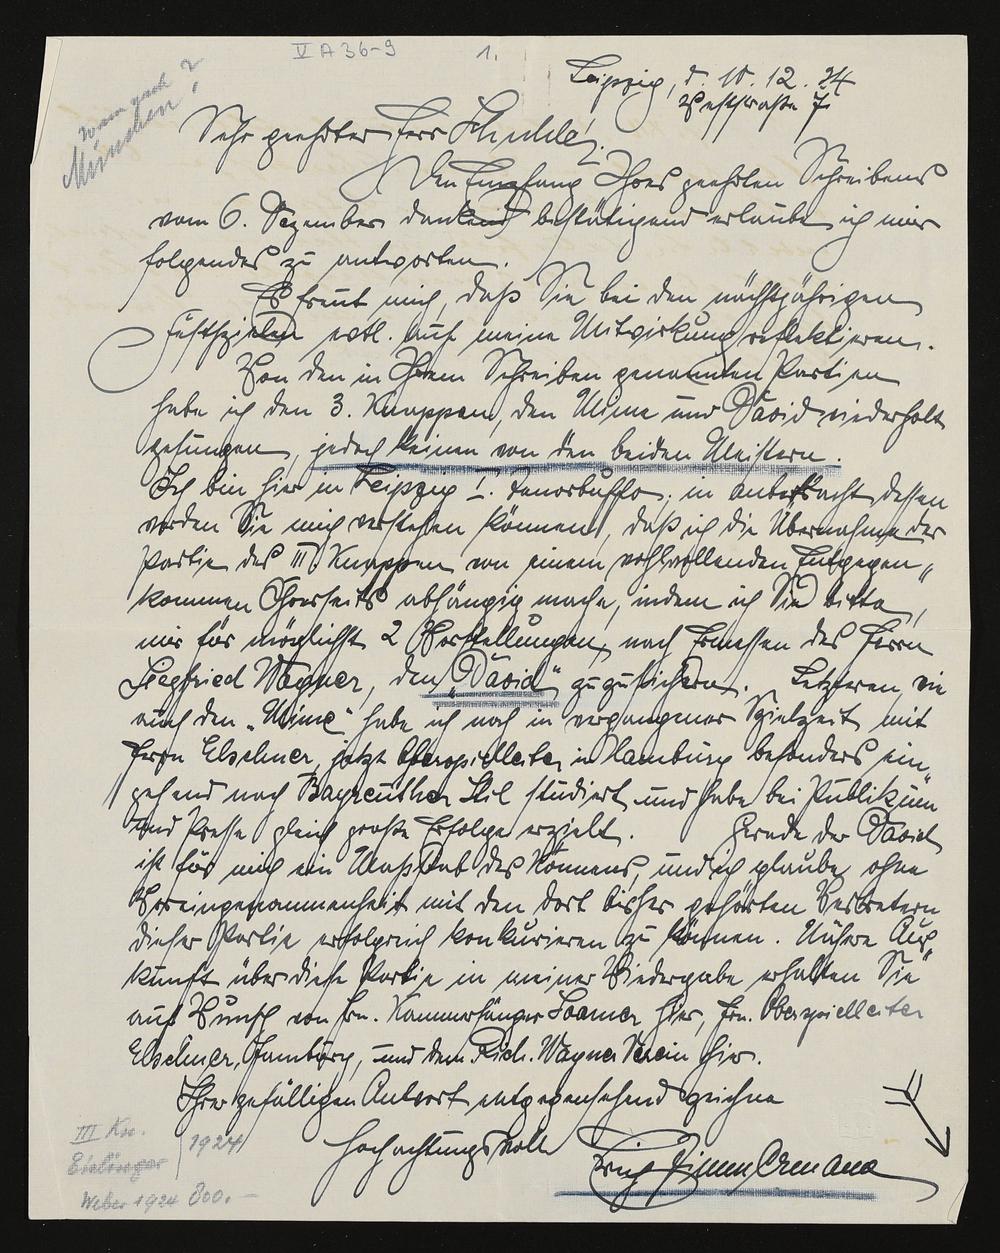 V A 36-9
1.
Wann nach
München?
Leipzig, d. 10. 12. 24
Weststraße 7
Sehr geehrter Herr Schuldes!
Den Empfang Ihres geehrten Schreibens
vom 6. Dezember dankend bestätigend erlaube ich mir
folgendes zu antworten.
Es freut mich, daß Sie bei den nächstjährigen
Festspielen evtl. auf meine Mitwirkung reflektieren.
Von den in Ihrem Schreiben genannten Partien
habe ich den 3. Knappen, den Mime und David wiederholt
gesungen, jedoch keinen von den beiden Meistern.
Ich bin hier in Leipzig I. Tenorbuffo; in anbetracht dessen
werden Sie mich verstehen können, daß ich die Übernahme der
Partie des III. Knappen von einem wohlwollenden Entgegen„
kommen Ihrerseits abhängig mache, indem ich Sie bitte,
mir für möglichst 2 Vorstellungen, nach Ermessen des Herrn
Siegfried Wagner, den „David" zuzusichern. Letzteren, wie
auch den „Mime" habe ich noch in vergangener Spielzeit mit
Herrn Elschner, jetzt Oberspielleiter in Hamburg besonders ein„
gehend nach Bayreuther Stil studiert und habe bei Publikum
und Presse gleich große Erfolge erzielt. Gerade der David
ist für mich ein Maßstab des Könnens, und ich glaube, ohne
Voreingenommenheit mit den dort bisher gehörten Vertretern
dieser Partie erfolgreich konkurieren zu können. Nähere Aus„
kunft über diese Partie in meiner Wiedergabe erhalten Sie
auf Wunsch von Hrn. Kammersänger hier, Hrn. Oberspielleiter
Elschner, Hamburg, und dem Rich. Wagner Verein hier.
Ihrer gefälligen Antwort entgegensehend zeichne
Hochachtungsvoll
Zimmermann
III Kn.
Eißlinger 1924
Weber 1924 800.-